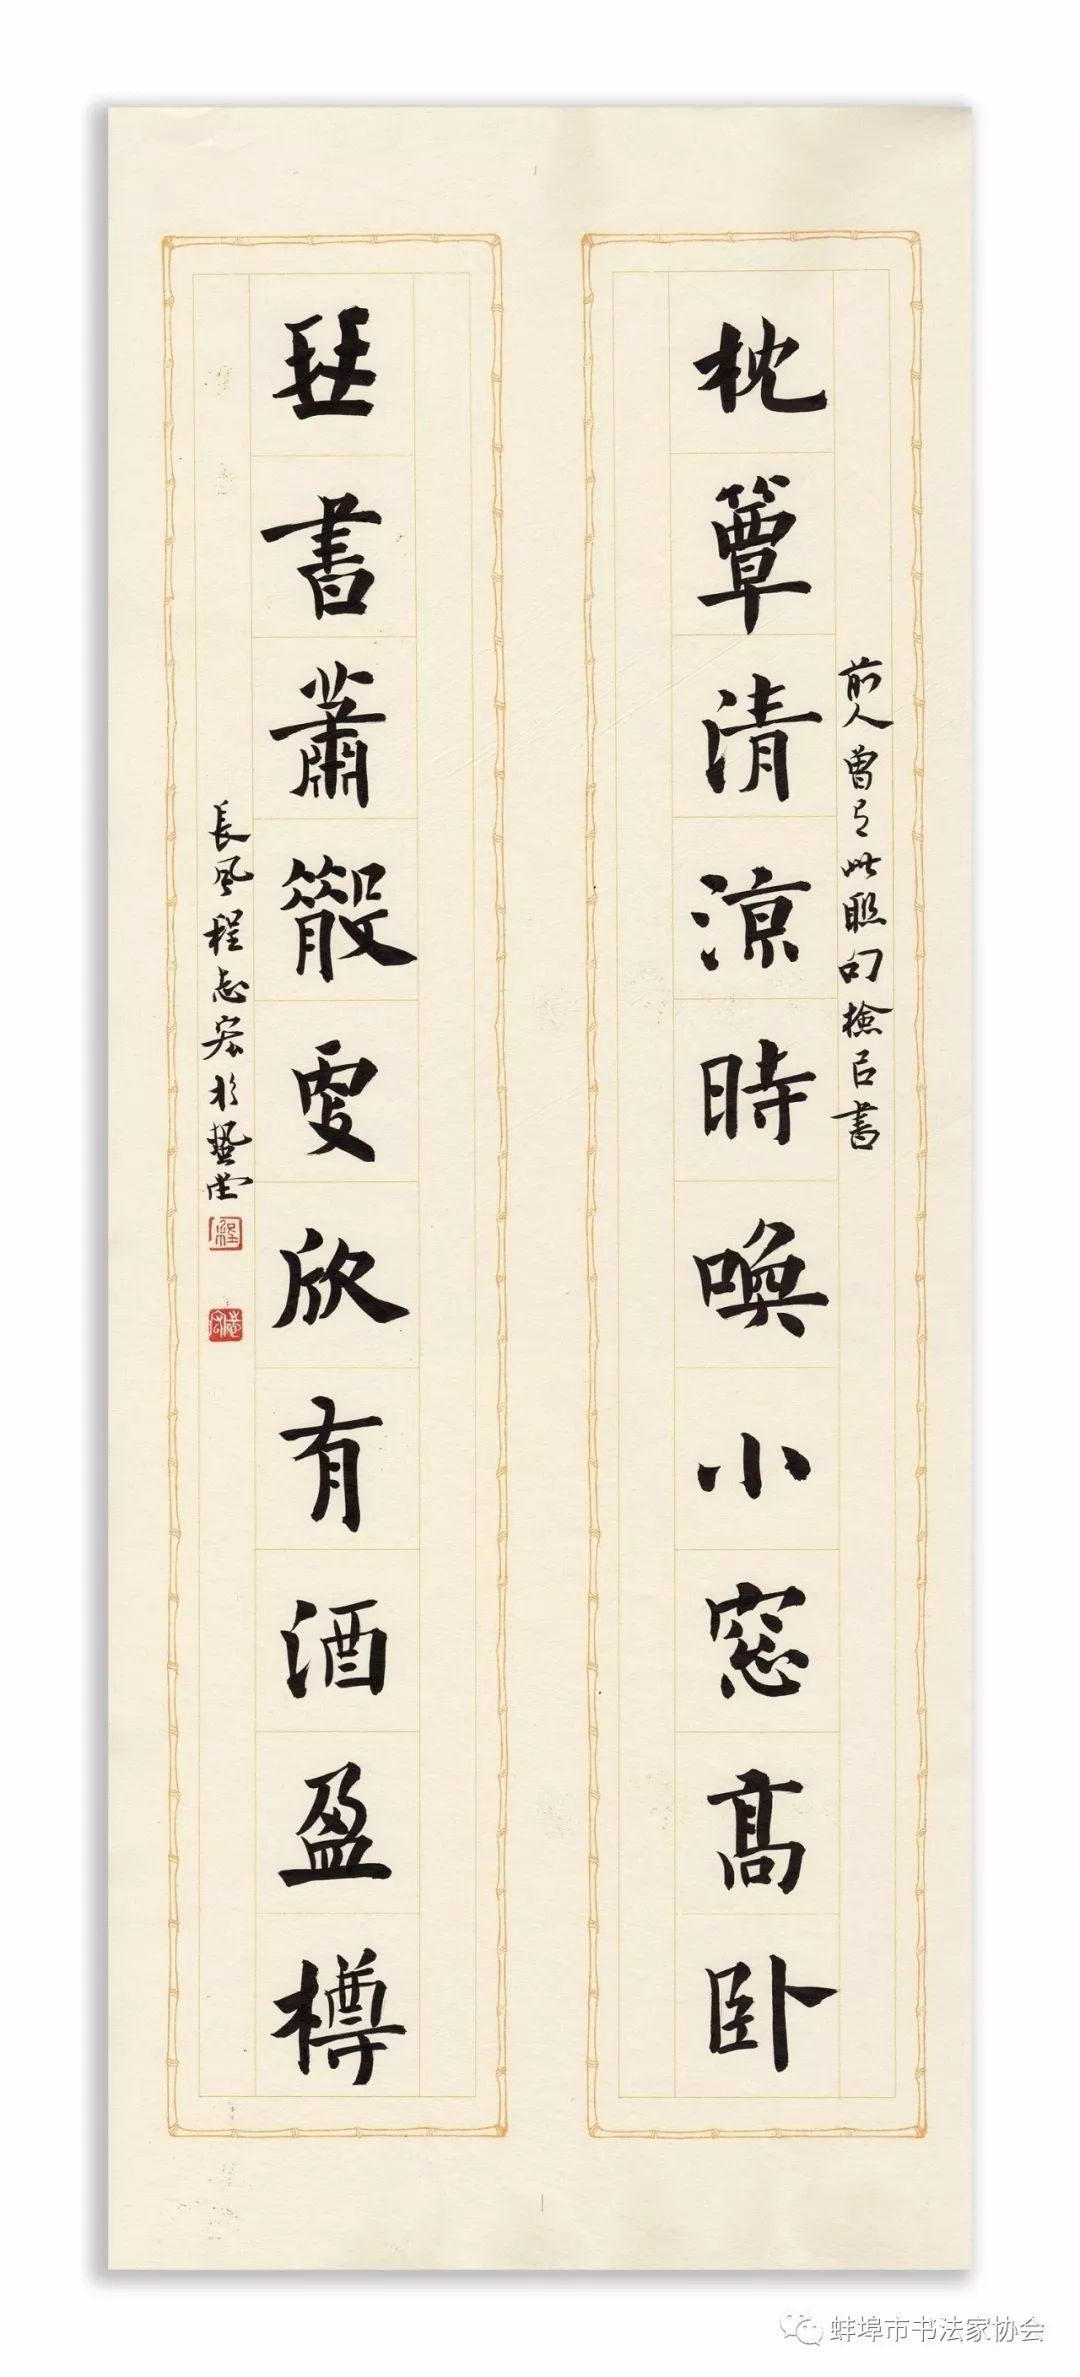 枕簟清涼時喚小窓高卧
前人曾有此聯句檢以書
琹書蕭散處欣有酒盈樽
長風程志宏於藝堂
蚌埠市书法家协会